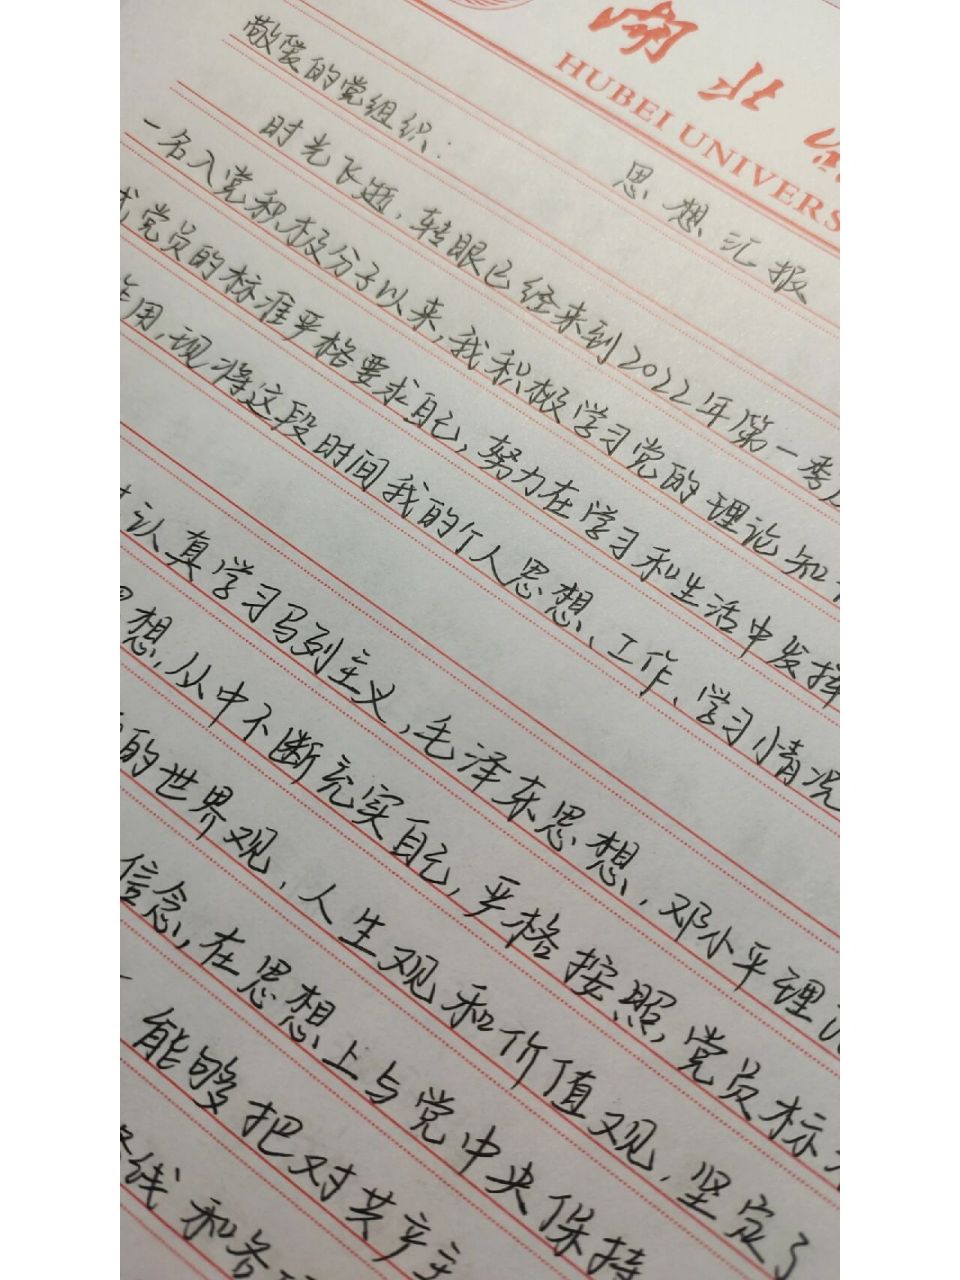 湖北
HUBEI UNIVERS
思想汇报
敬爱的党组织：
时光飞逝，转眼已经来到2022年第一季
一名入党积极分子以来，我积极学习党的理论知
党员的标准严格要求自己，努力在学习和生活中发挥
作用，现将这段时间我的个人思想、工作、学习情况
认真学习马列主义，毛泽东思想，邓小平理
思想，从中不断充实自己，严格按照党员标
的世界观，人生观和价值观，坚定了
信念，在思想上与党中央保持
能够把对共产主
线和各